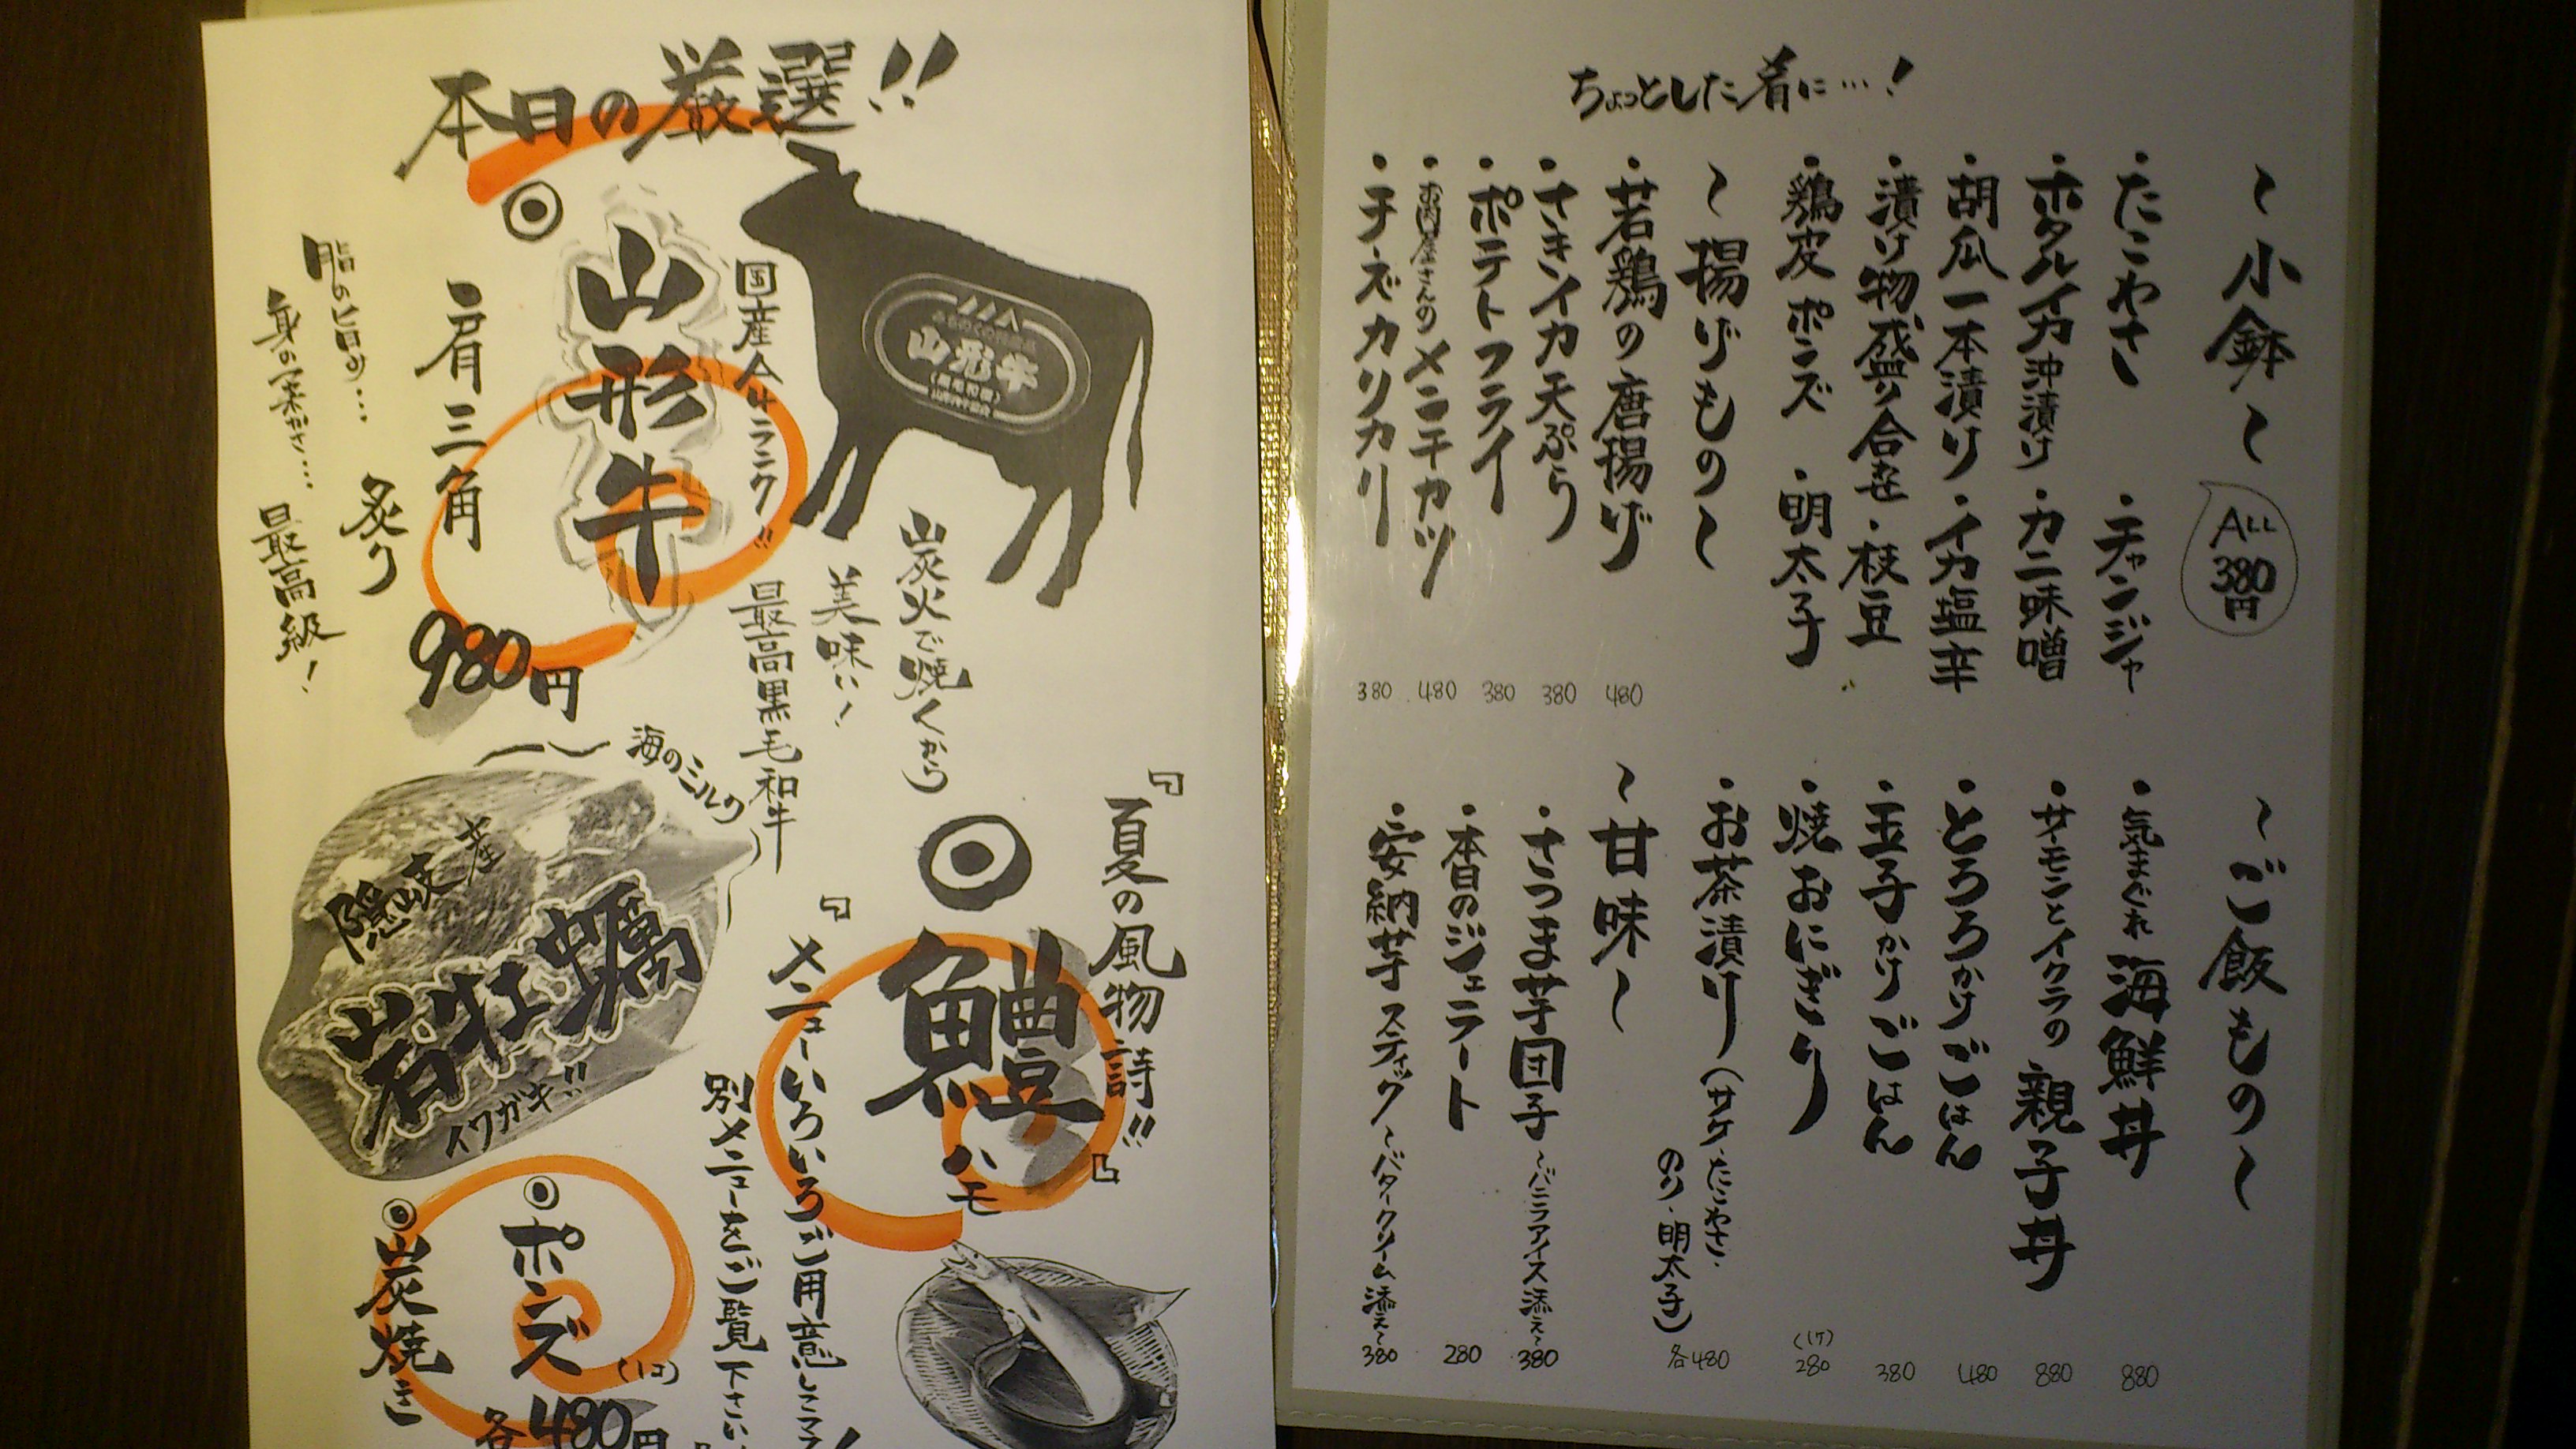 本日の厳選!!
国産A4ランク!!
◎山形牛
・肩三角
炙り
980円
脂の旨み…
身の柔かさ…
最高級!
山形牛
炭火で焼くから
美味い!
最高黒毛和牛
海のミルク
隠岐産
岩牡蠣
イワガキ!!
◎ポンズ
◎炭焼き
(1コ)
各480円
『夏の風物詩!!』
◎鱧
ハモ
『メニューいろいろご用意してマス
別メニューをご覧下さい
ちょっとした肴に…!
~小鉢~
ALL
380
円
・たこわさ
・チャンジャ
・ホタルイカ沖漬け
・カニ味噌
・胡瓜一本漬け
・イカ塩辛
・漬け物盛り合せ
・枝豆
・鶏皮ポンズ
・明太子
~揚げもの~
・若鶏の唐揚げ 480
・さきイカ天ぷら 380
・ポテトフライ 380
・お肉屋さんのメンチカツ 480
・チーズカリカリ 380
~ご飯もの~
・気まぐれ海鮮丼 880
・サーモンとイクラの親子丼 880
・とろろかけごはん 480
・玉子かけごはん 380
・焼おにぎり (1ケ) 280
・お茶漬け(サケ・たこわさ・
のり・明太子) 各480
~甘味~
・さつま芋団子~バニラアイス添え~ 380
・本日のジェラート 280
・安納芋スティック~バタークリーム添え~ 380